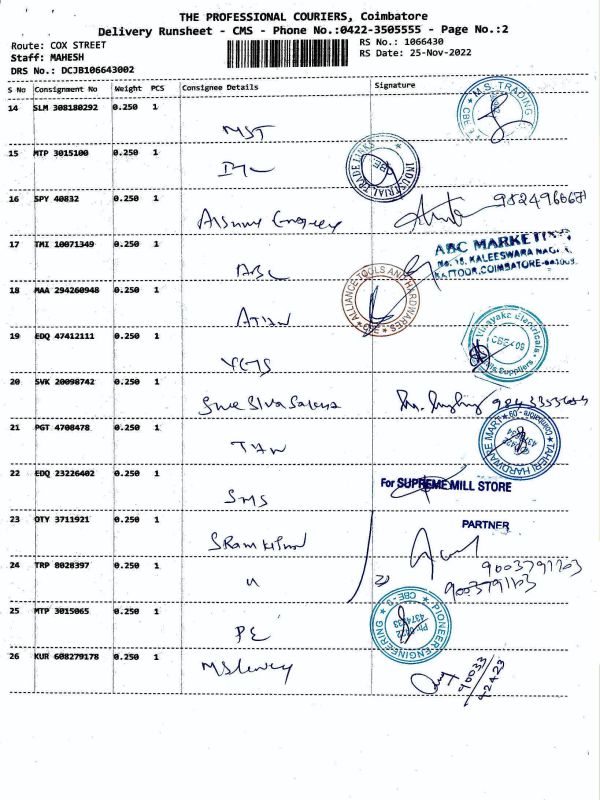 THE PROFESSIONAL COURIERS, Coimbatore
Delivery Runsheet - CMS - Phone No.:0422-3505555 - Page No.:2
Route: COX STREET
Staff: MAHESH
DRS No.: DCJB106643002
RS No.: 1066430
RS Date: 25-Nov-2022
S No Consignment No Weight PCS Consignee Details Signature
14 SLM 308180292 0.250 1 MST M.S. TRADING CBE
15 MTP 3015100 0.250 1 INDUSTRIAL TRADE LINKS CBE.
16 SPY 40832 0.250 1
17 TMI 10071349 0.250 1 ABC ABC MARKETING
No. 15, KALEESWARA NAGAR,
KATTOOR, COIMBATORE-641009.
18 MAA 294260948 0.250 1 ATHW ALLIANCE TOOLS AND HARDWARES
19 EDQ 47412111 0.250 1 Vinayaka Electricals
Mills Suppliers
20 SVK 20098742 0.250 1 Sree Siva Sakthi
21 PGT 4708478 0.250 1 THW TAHERI HARDWARE MART Coimbatore-09
22 EDQ 23226402 0.250 1 SMS For SUPREME MILL STORE
PARTNER
23 OTY 3711921 0.250 1
24 TRP 8028397 0.250 1 " 9003791103
9003791103
25 MTP 3015065 0.250 1 PE PIONEER ENGINEERING CBE - 9
26 KUR 608279178 0.250 1 90033
42423